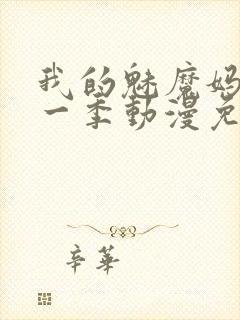 我的魅魔妈
一季動漫免
辛華